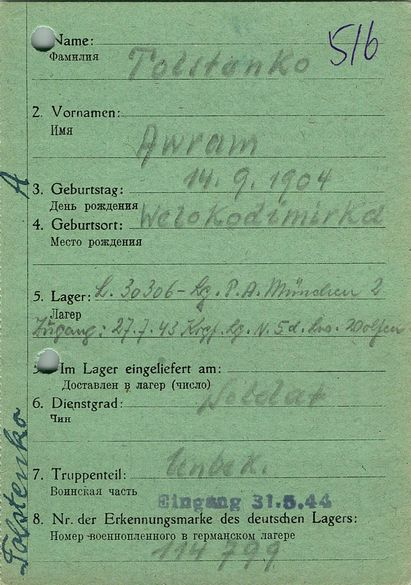 Name: 516
Фамилия
Tolstenko
2. Vornamen:
Имя
Awram
3. Geburtstag: 14.9.1904
День рождения
4. Geburtsort: Welokodimirka
Место рождения
5. Lager: L. 30306 - Lg. P.A. München 2
Лагер
Zugang: 27.7.43 Krgf. Lg. V. 5 d.
Im Lager eingeliefert am:
Доставлен в лагер (число)
6. Dienstgrad: Soldat
Чин
7. Truppenteil: Unbek.
Воинская часть
Eingang 31.5.44
8. Nr. der Erkennungsmarke des deutschen Lagers:
Номер военнопленного в германском лагере
114799
A
Tolstenko